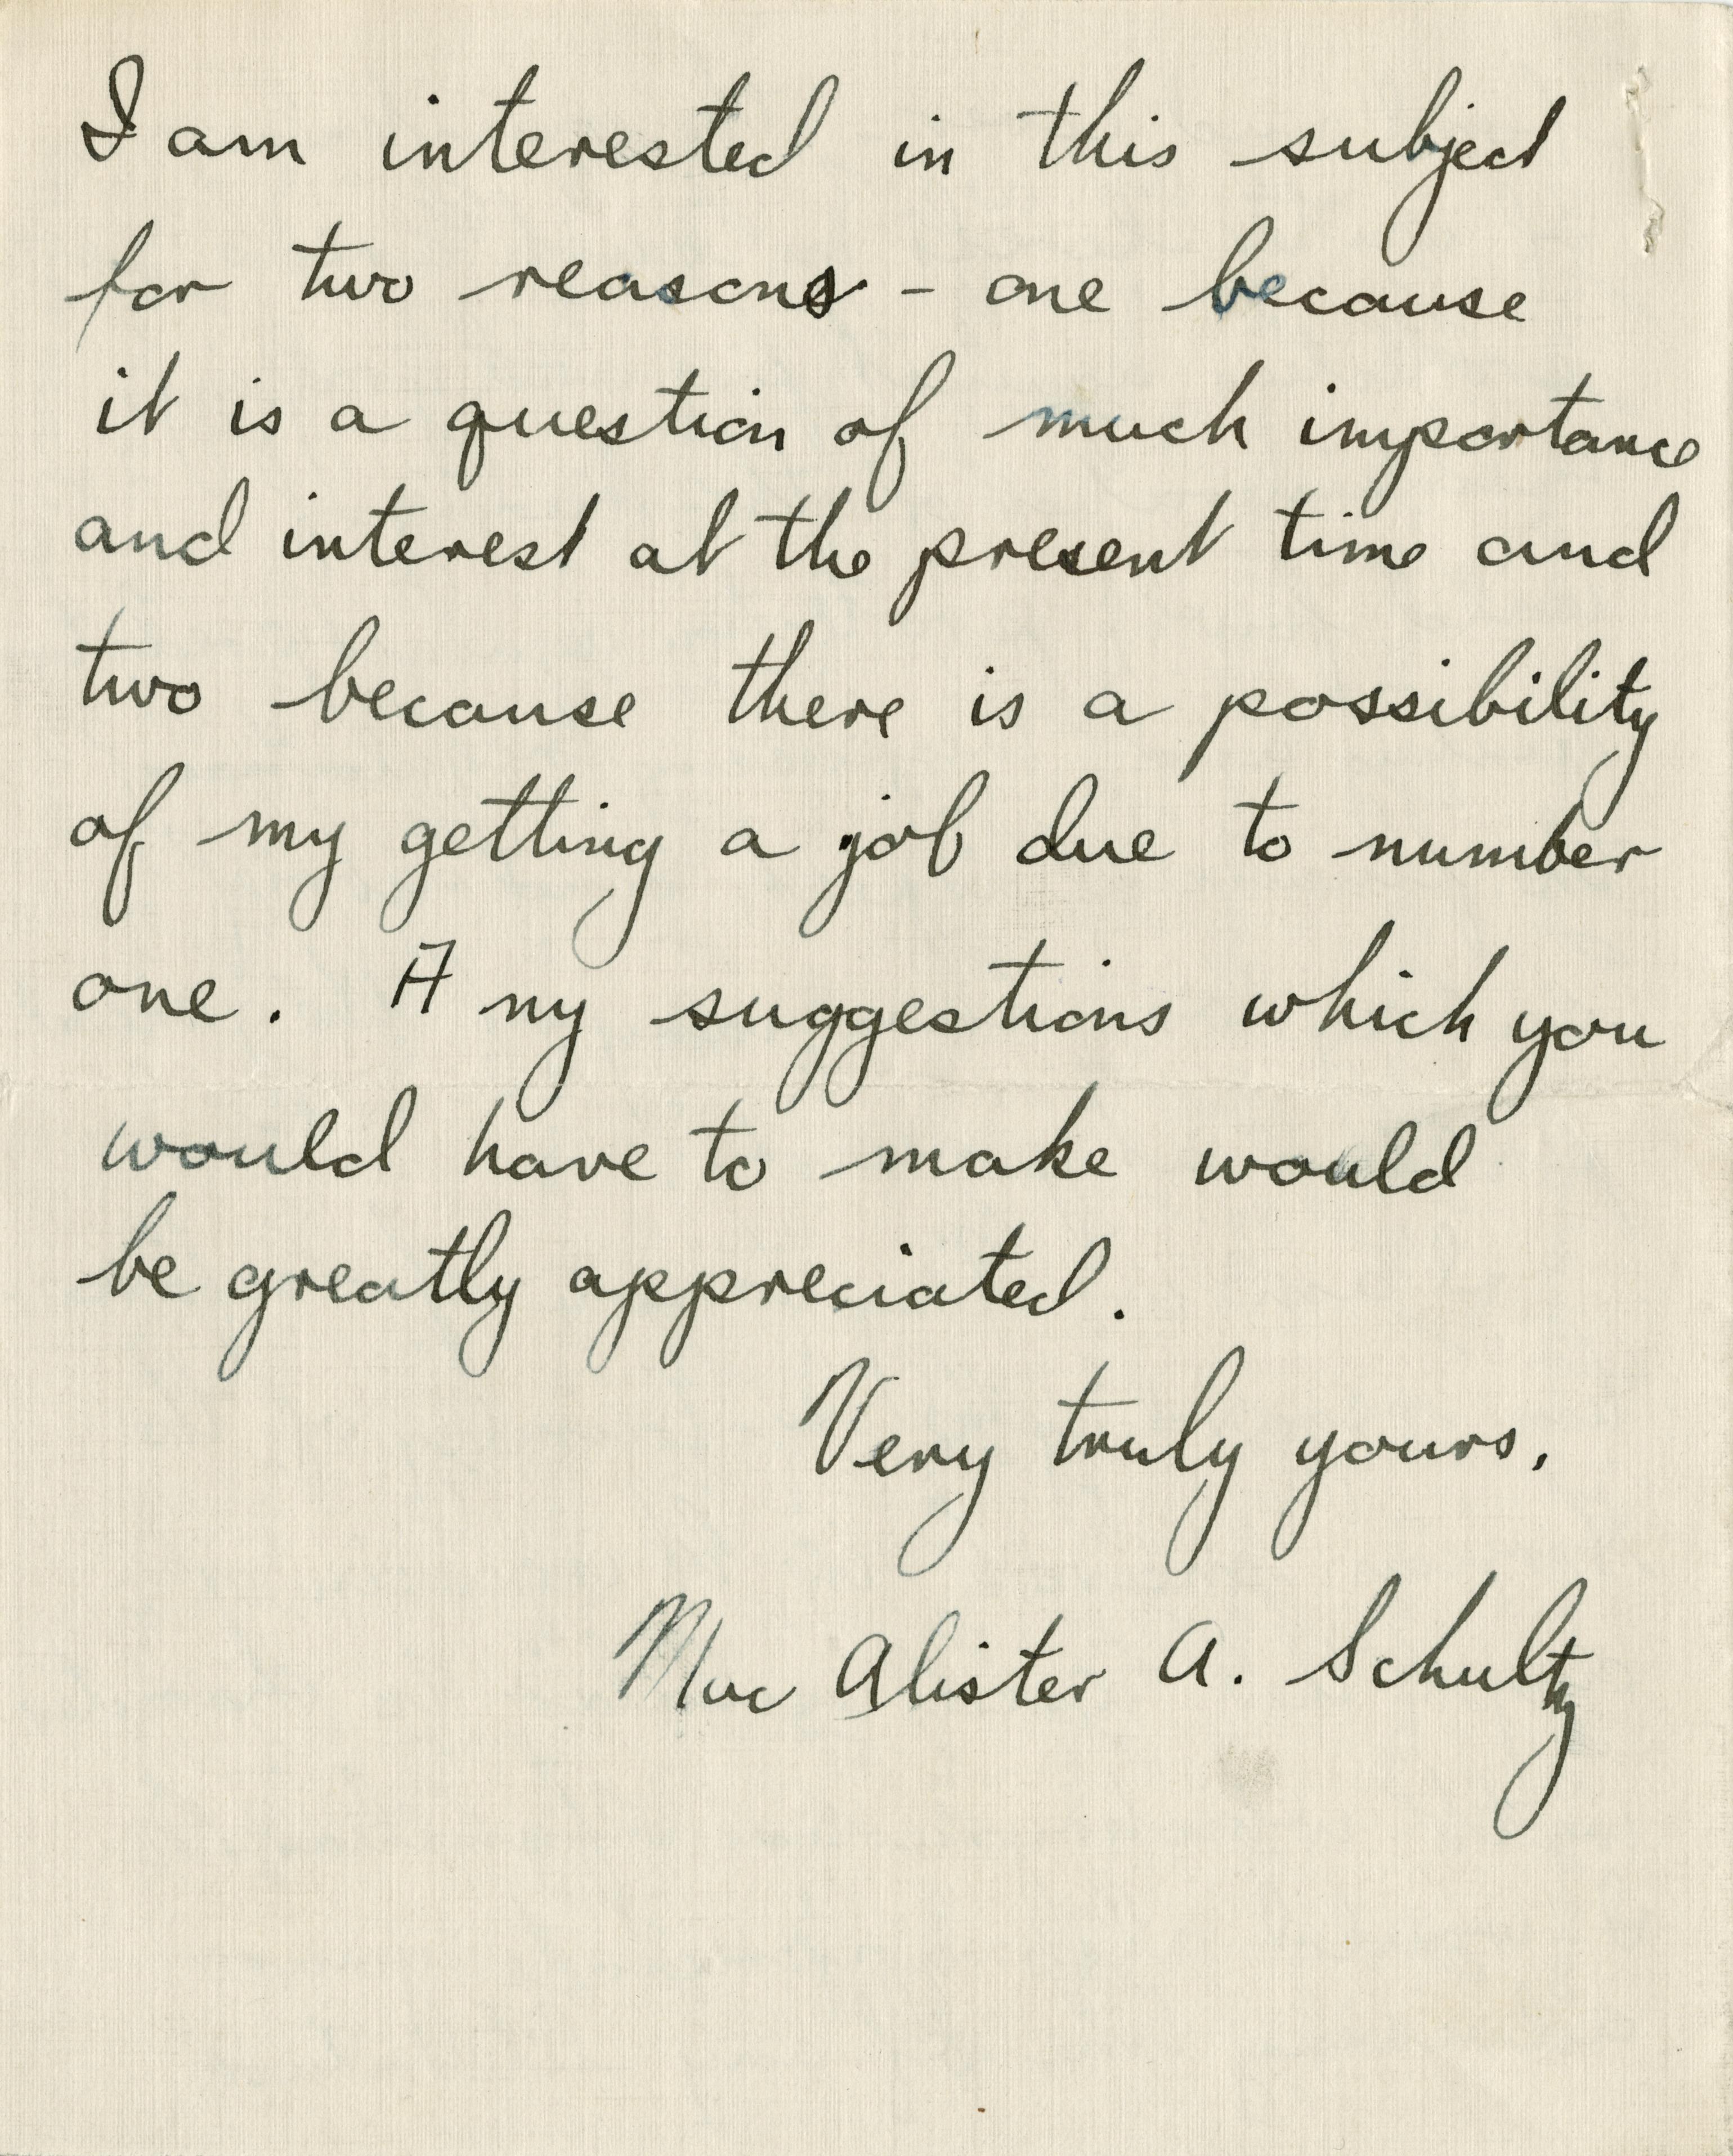 I am interested in this subject
for two reasons - one because
it is a question of much importance
and interest at the present time and
two because there is a possibility
of my getting a job due to number
one. Any suggestions which you
would have to make would
be greatly appreciated.
Very truly yours,
Mac Alister A. Schultz